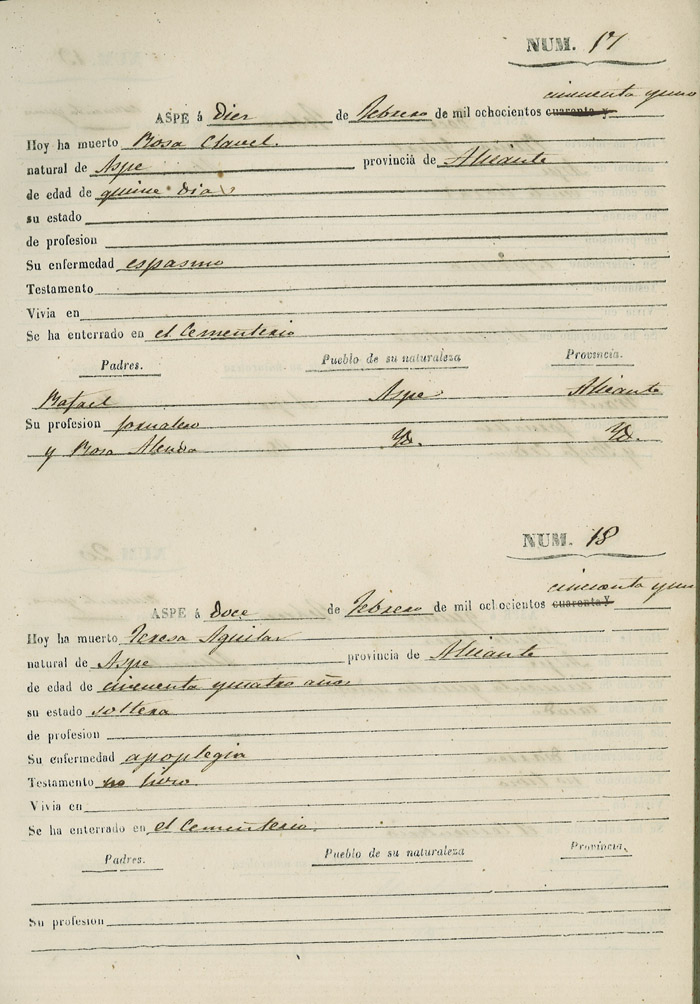 NUM. 17
cincuenta y uno
ASPE á Diez de Febrero de mil ochocientos cuarenta y
Hoy ha muerto Rosa Clavel.
natural de Aspe provincia de Alicante
de edad de quince dias
su estado
de profesion
Su enfermedad espasmo
Testamento
Vivia en
Se ha enterrado en el Cementerio
Padres. Pueblo de su naturaleza Provincia.
Rafael Aspe Alicante
Su profesion jornalero
y Rosa Yd. Yd.
NUM. 18
cincuenta y uno
ASPE á Doce de Febrero de mil ochocientos cuarenta y
Hoy ha muerto Teresa Aguilar
natural de Aspe provincia de Alicante
de edad de cincuenta y cuatro años
su estado soltera
de profesion
Su enfermedad apoplegia
Testamento no hizo
Vivia en
Se ha enterrado en el Cementerio.
Padres. Pueblo de su naturaleza Provincia.
Su profesion